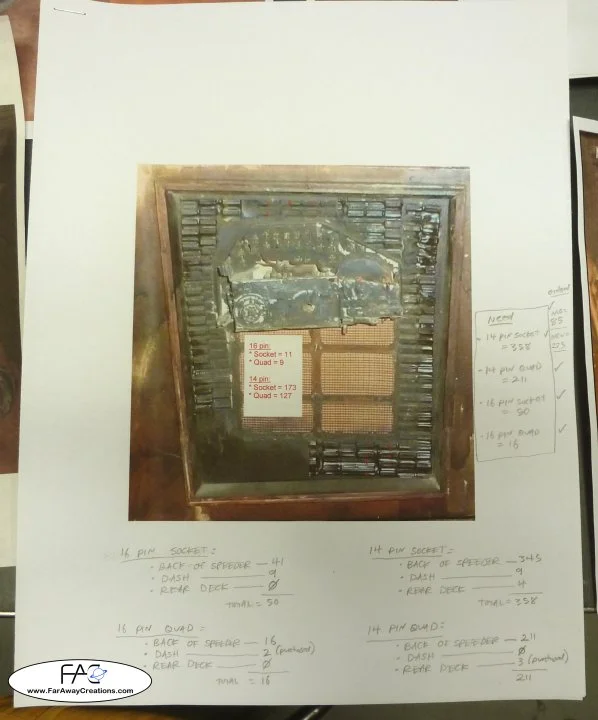 16 pin:
* Socket = 11
* Quad = 9
14 pin:
* Socket = 173
* Quad = 127
NEED
- 14 PIN SOCKET
= 358
- 14 PIN QUAD
= 211
- 16 PIN SOCKET
= 50
- 16 PIN QUAD
= 16
16 PIN SOCKET:
• BACK OF SPEEDER — 41
• DASH — 9
• REAR DECK — Ø
TOTAL = 50
14 PIN SOCKET:
• BACK OF SPEEDER — 345
• DASH — 9
• REAR DECK — 4
TOTAL = 358
16 PIN QUAD:
• BACK OF SPEEDER — 16
• DASH — 2 (purchased)
• REAR DECK — Ø
TOTAL = 16
14 PIN QUAD:
• BACK OF SPEEDER — 211
• DASH — Ø
• REAR DECK — 3 (purchased)
211
FAC
www.FarAwayCreations.com